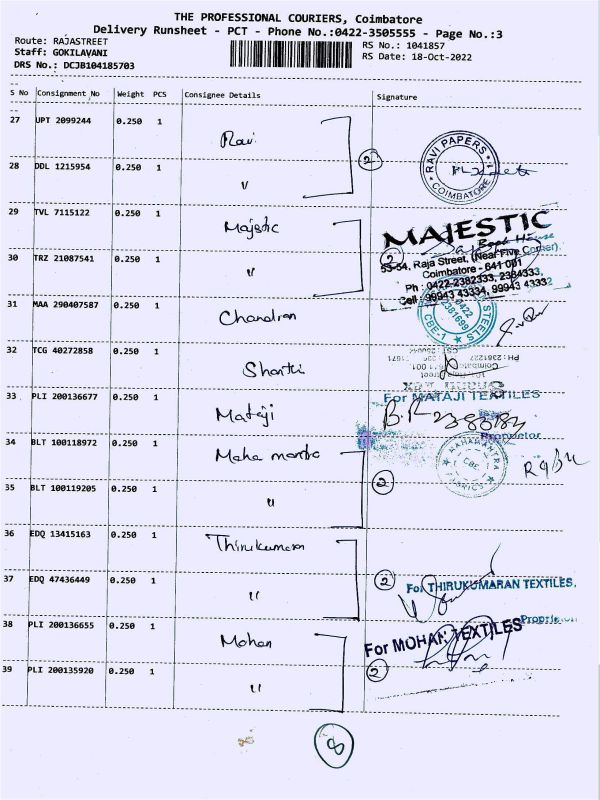 THE PROFESSIONAL COURIERS, Coimbatore
Delivery Runsheet - PCT - Phone No.:0422-3505555 - Page No.:3
Route: RAJASTREET
Staff: GOKILAVANI
DRS No.: DCJB104185703
RS No.: 1041857
RS Date: 18-Oct-2022
S No Consignment No Weight PCS Consignee Details Signature
27 UPT 2099244 0.250 1 Ravi
2
RAVI PAPERS
COIMBATORE
28 DDL 1215954 0.250 1 "
29 TVL 7115122 0.250 1 Majestic
2
MAJESTIC
Book House
53-54, Raja Street, (Near Five Corner),
Coimbatore - 641 001
Ph : 0422-2382333, 2384333,
Cell : 99943 43334, 99943 43332
30 TRZ 21087541 0.250 1 "
31 MAA 290407587 0.250 1 Chandran
0422
2381699
STEELS
CBE-1
32 TCG 40272858 0.250 1 Shanthi
PH : 2361227
33 PLI 200136677 0.250 1 Mataji
For MATAJI TEXTILES
Proprietor
34 BLT 100118972 0.250 1 Maha mantra
2
MAHAMANTRA
CBE
FABRICS
35 BLT 100119205 0.250 1 "
36 EDQ 13415163 0.250 1 Thirukumaran
2
For THIRUKUMARAN TEXTILES,
Proprietor
37 EDQ 47436449 0.250 1 "
38 PLI 200136655 0.250 1 Mohan
2
For MOHAN TEXTILES
39 PLI 200135920 0.250 1 "
8